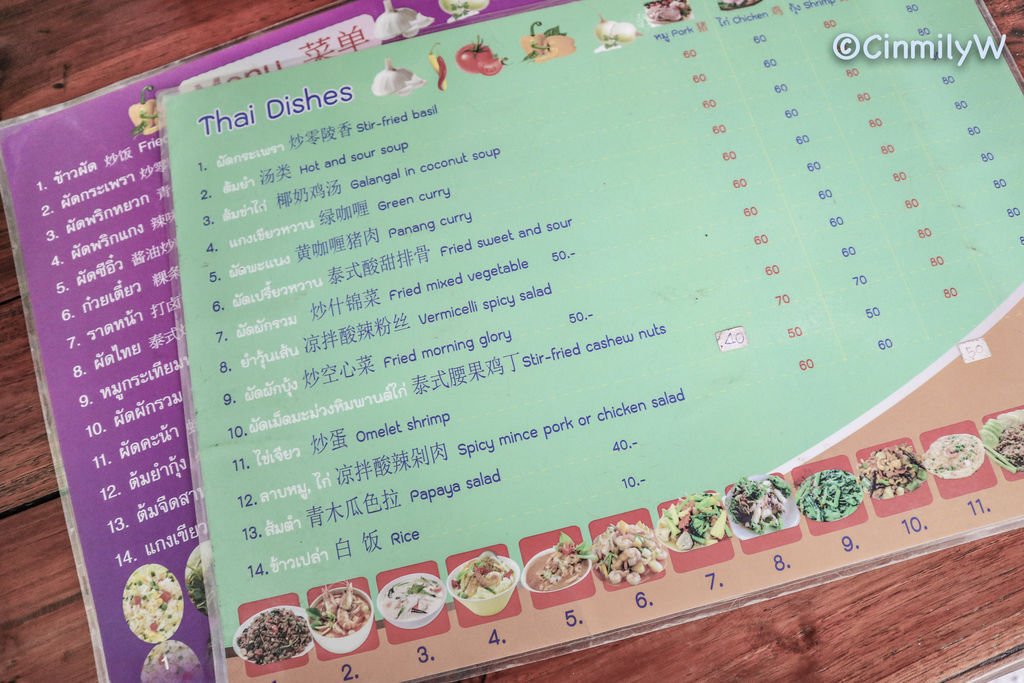 ©CinmilyW
Menu 菜单
Thai Dishes
หมู Pork 猪 ไก่ Chicken 鸡 กุ้ง Shrimp
1. ผัดกระเพรา 炒零陵香 Stir-fried basil 60 60 80
2. ต้มยำ 汤类 Hot and sour soup 60 60 80
3. ต้มข่าไก่ 椰奶鸡汤 Galangal in coconut soup 60 60 80
4. แกงเขียวหวาน 绿咖喱 Green curry 60 60 80
5. ผัดพะแนง 黄咖喱猪肉 Panang curry 60 60 80
6. ผัดเปรี้ยวหวาน 泰式酸甜排骨 Fried sweet and sour 60 60 80
7. ผัดผักรวม 炒什锦菜 Fried mixed vegetable 50.- 60 60 80
8. ยำวุ้นเส้น 凉拌酸辣粉丝 Vermicelli spicy salad 60 60 80
9. ผัดผักบุ้ง 炒空心菜 Fried morning glory 50.- 60 60 80
10. ผัดเม็ดมะม่วงหิมพานต์ไก่ 泰式腰果鸡丁 Stir-fried cashew nuts 70 70 80
11. ไข่เจียว 炒蛋 Omelet shrimp 40 50 50 50
12. ลาบหมู, ไก่ 凉拌酸辣剁肉 Spicy mince pork or chicken salad 60 60
13. ส้มตำ 青木瓜色拉 Papaya salad 40.-
14. ข้าวเปล่า 白饭 Rice 10.-
2. 3. 4. 5. 6. 7. 8. 9. 10. 11.
1. ข้าวผัด 炒饭
2. ผัดกระเพรา
3. ผัดพริกหยวก 青
4. ผัดพริกแกง 辣
5. ผัดซีอิ๊ว 酱油炒
6. ก๋วยเตี๋ยว 粿条
7. ราดหน้า 打卤
8. ผัดไทย 泰式
9. หมูกระเทียม
10. ผัดผักรวม
11. ผัดคะน้า
12. ต้มยำกุ้ง
13. ต้มจืด
14. แกงเขียว
1